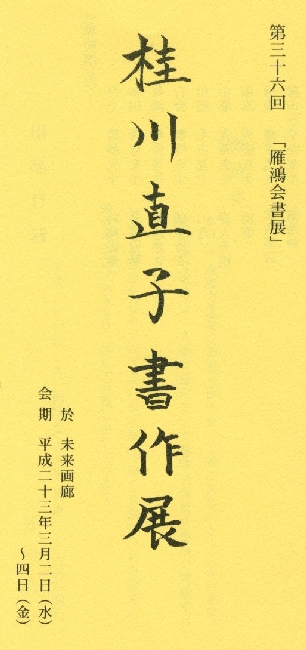 第三十六回 「雁鴻会書展」
桂川直子書作展
於 未来画廊
会期 平成二十三年三月二日（水）
～四日（金）